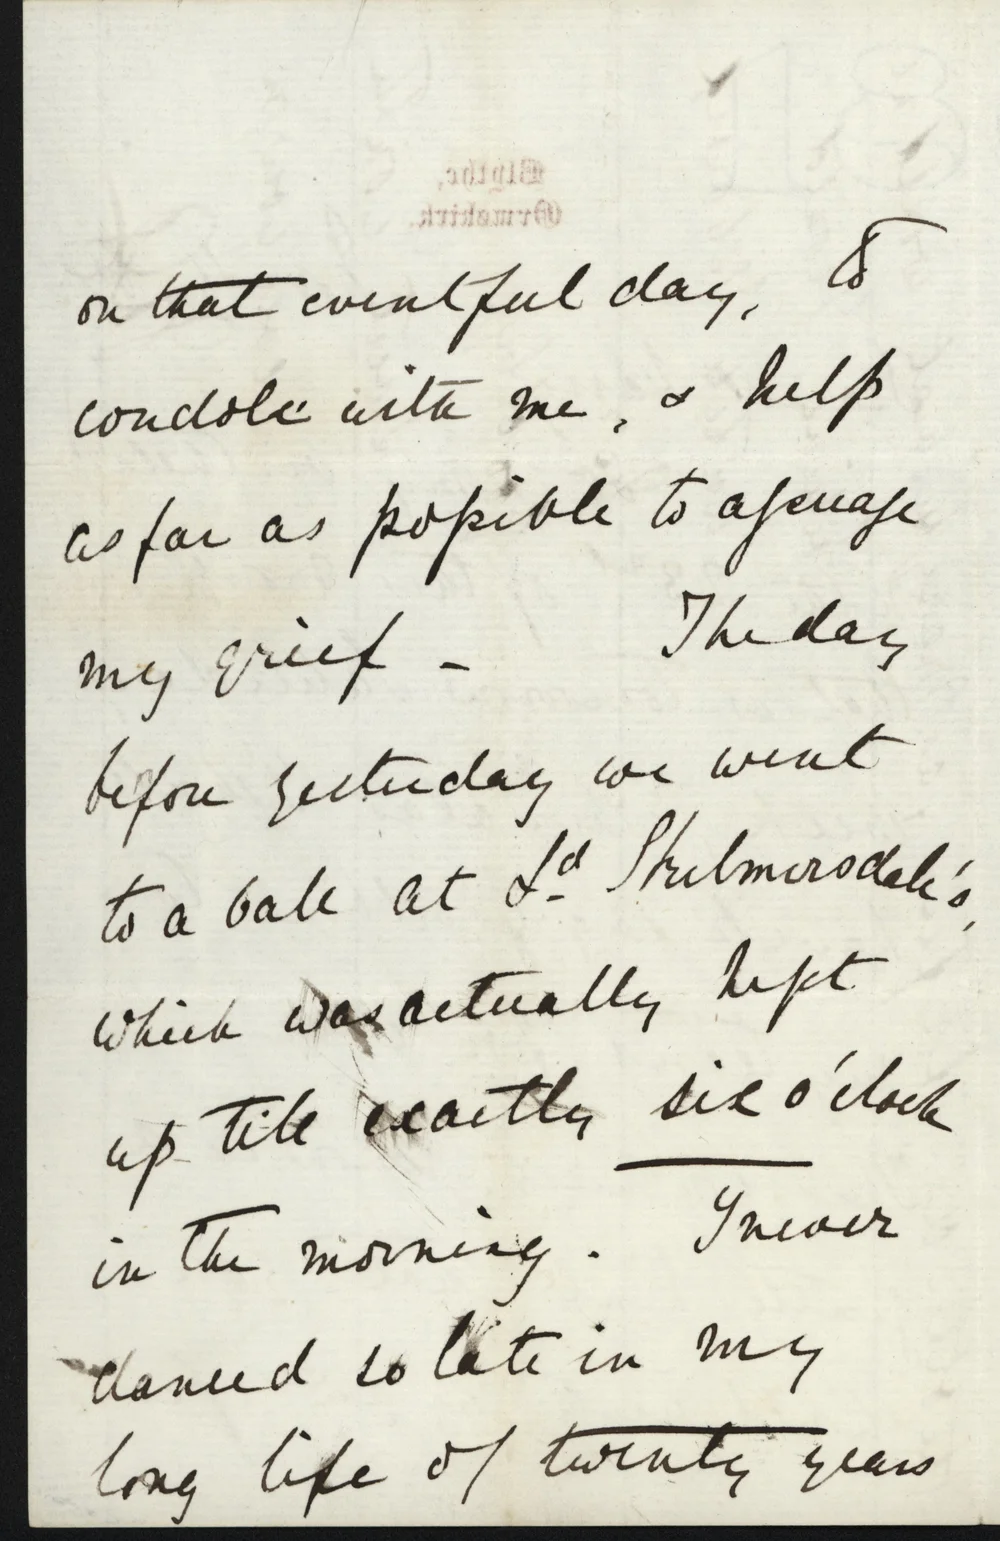 Blythe,
Ormskirk.
on that eventful day, to
condole with me, & help
as far as possible to assuage
my grief – The day
before yesterday we went
to a ball at Ld Skelmersdale's,
which was actually kept
up till exactly six o'clock
in the morning. I never
danced so late in my
long life of twenty years